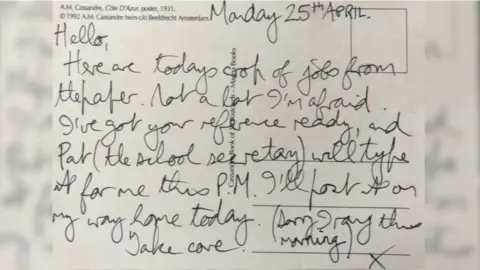 A.M. Cassandre, Côte D'Azur, poster, 1931.
© 1992 A.M. Cassandre heirs c/o Beeldrecht Amsterdam.
Monday 25TH APRIL.
Hello,
Here are todays of jobs from
the paper. Not a lot I'm afraid.
I've got your reference ready, and
Pat (the school secretary) will type
it for me this P.M. I'll post it on
my way home today. (Sorry I rang this
morning)
Take care.
X
Book of Postcards – Books